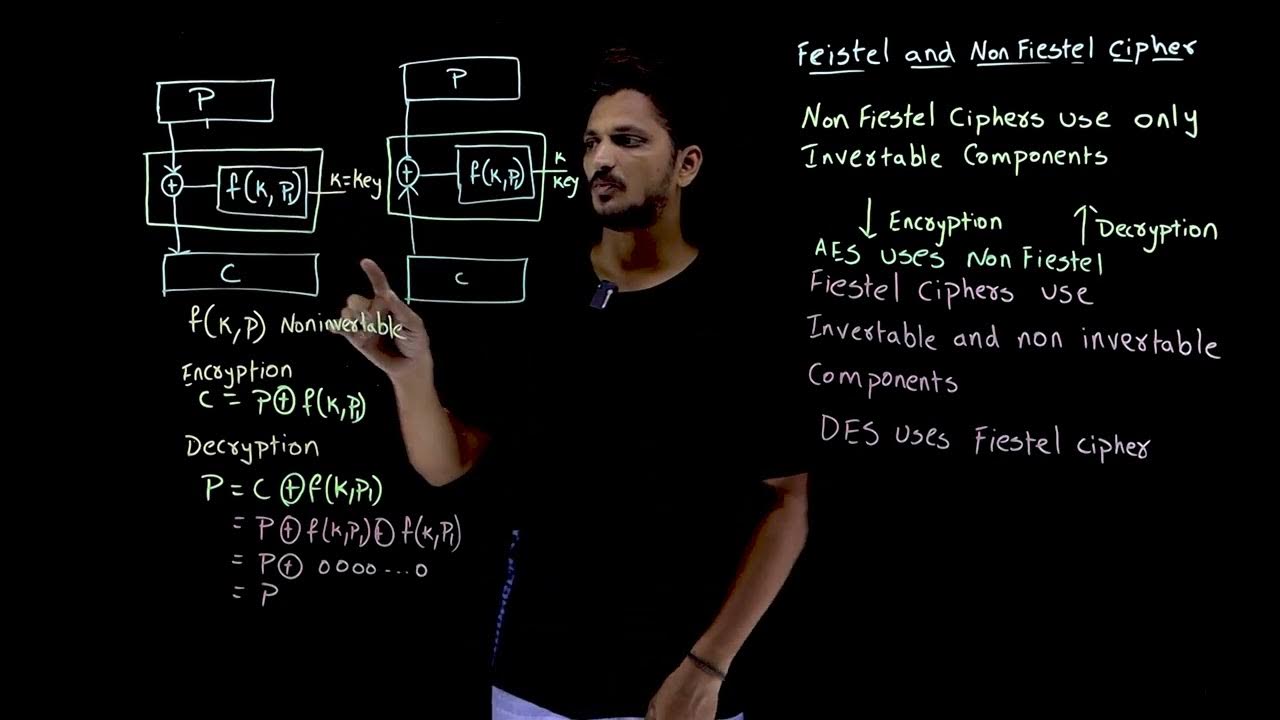 Feistel and Non Fiestel Cipher
P
f(K, P1)
K=Key
C
P
f(K, P1)
K
Key
C
f(K, P) Noninvertable
Encryption
C = P⊕f(K,P1)
Decryption
P = C ⊕f(K,P1)
= P⊕f(K,P1)⊕f(K,P1)
= P⊕ 0000...0
= P
Non Fiestel Ciphers use only
Invertable Components
↓ Encryption ↑ Decryption
AES uses Non Fiestel
Fiestel Ciphers use
Invertable and non invertable
Components
DES uses Fiestel cipher